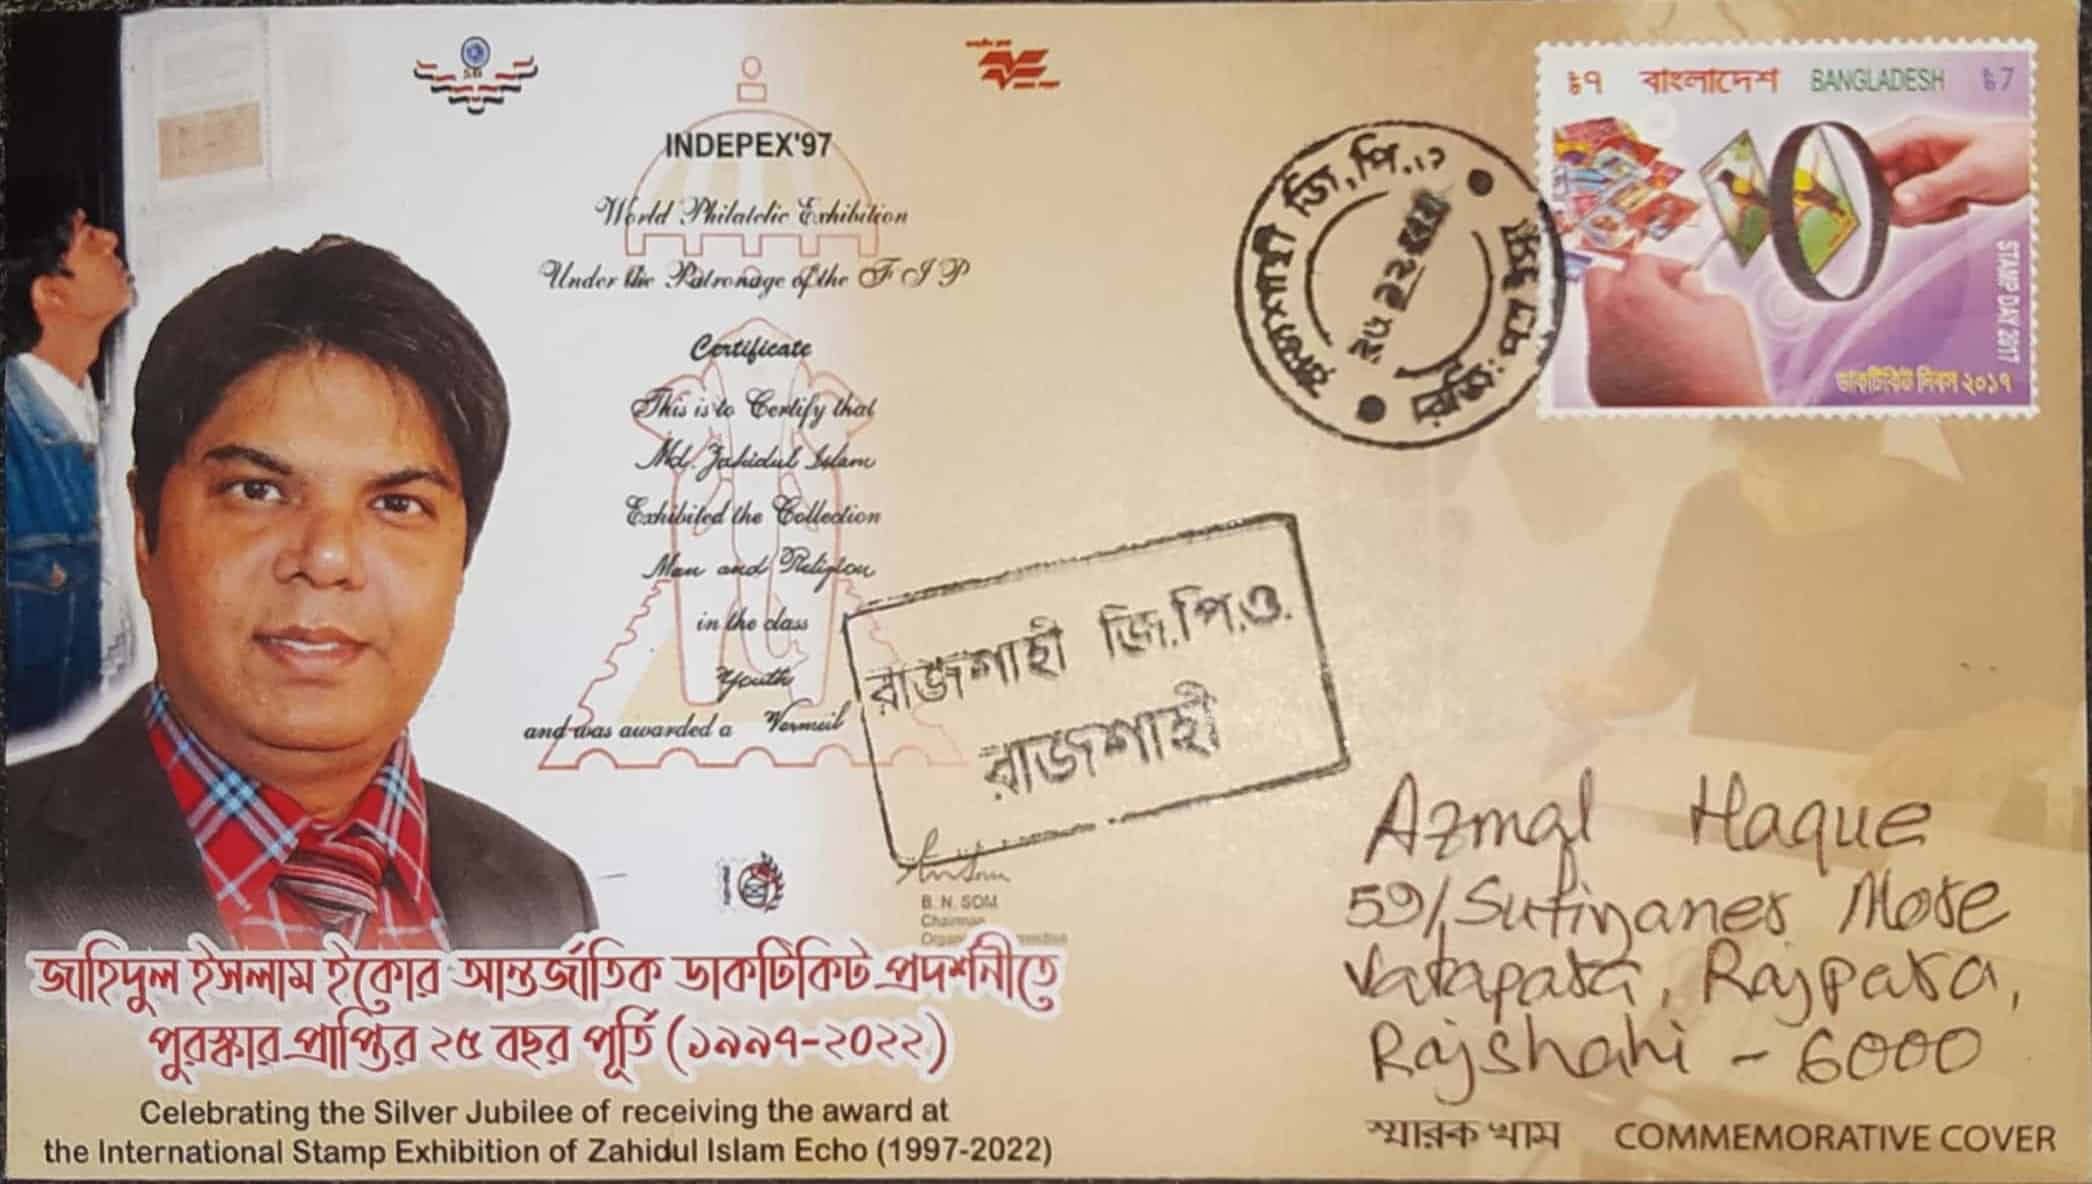 INDEPEX'97
World Philatelic Exhibition
Under the Patronage of the F I P
Certificate
This is to Certify that
Md. Zahidul Islam
Exhibited the Collection
Man and Religion
in the class
Youth
and was awarded a Vermeil
B. N. SOM
Chairman
জাহিদুল ইসলাম ইকোর আন্তর্জাতিক ডাকটিকিট প্রদর্শনীতে
পুরস্কার প্রাপ্তির ২৫ বছর পূর্তি (১৯৯৭-২০২২)
Celebrating the Silver Jubilee of receiving the award at
the International Stamp Exhibition of Zahidul Islam Echo (1997-2022)
৳৭ বাংলাদেশ BANGLADESH ৳7
STAMP DAY 2017
ডাকটিকিট দিবস ২০১৭
রাজশাহী জি.পি.ও.
রাজশাহী
Azmal Haque
59/Sufiyaner More
Vatapara, Rajpara,
Rajshahi - 6000
স্মারক খাম COMMEMORATIVE COVER